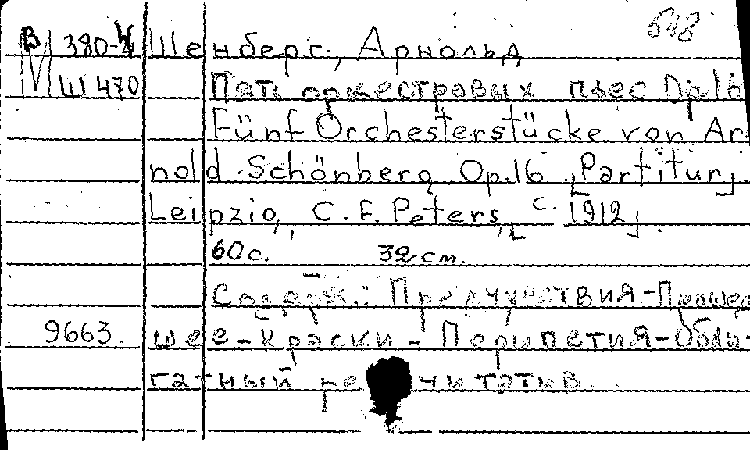 В 380-4 Шенберг, Арнольд
М Ш 470 Пять оркестровых пьес Op.16
Fünf Orchesterstücke von Ar
nold Schönberg Op.16 [Partitur]
Leipzig, C. F. Peters, [c. 1912]
60 с. 32 см.
Содерж.: Предчувствия-Прошед
9663 шее-Краски-Перипетия-Обли-
гатный речитатив.